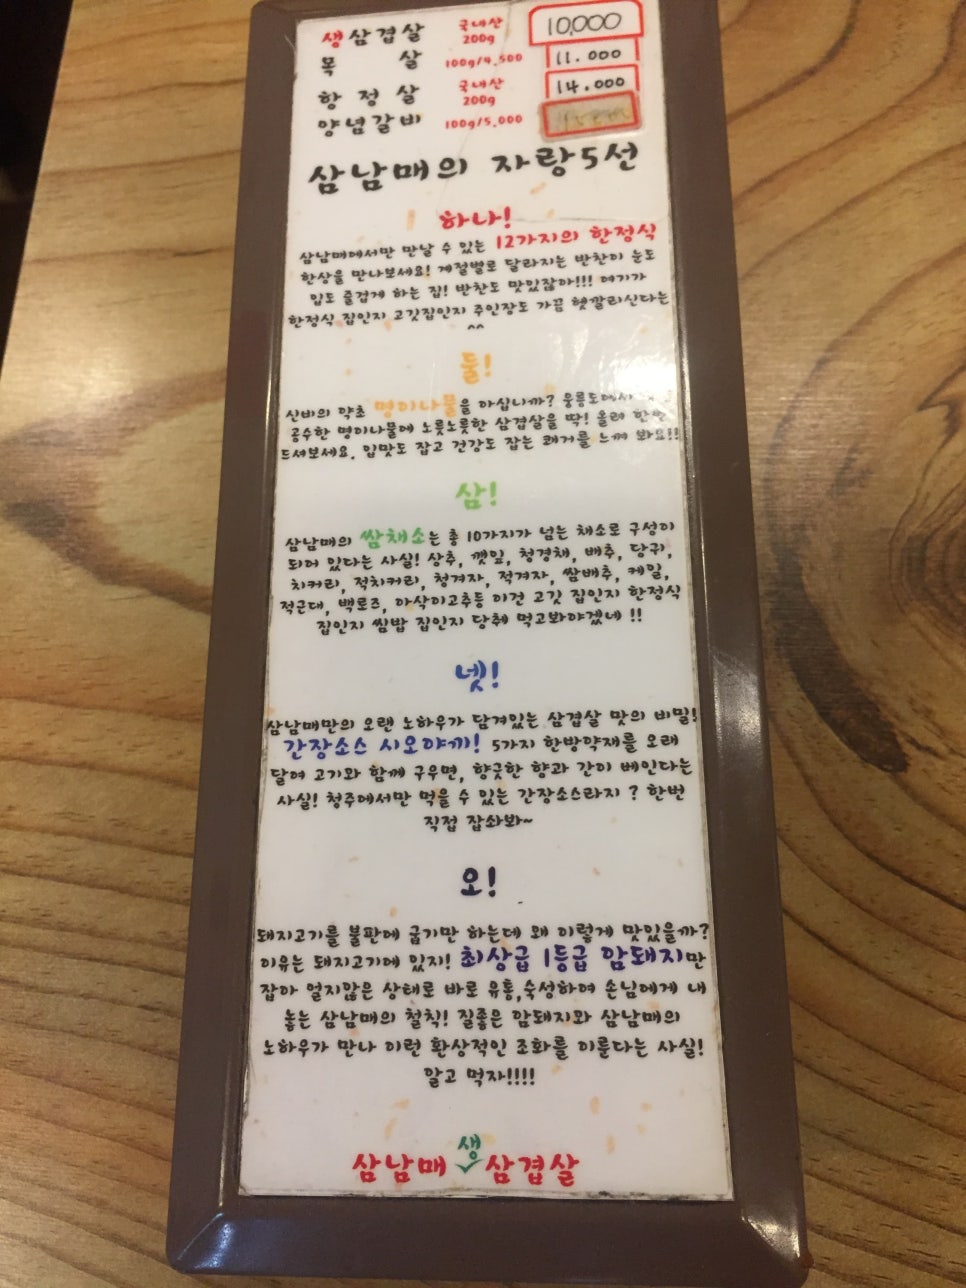 생삼겹살 국내산 200g 10,000
목 살 100g/4,500 11.000
항정살 국내산 200g 14.000
양념갈비 100g/5,000
삼남매의 자랑5선
하나!
삼남매에서만 만날 수 있는 12가지의 한정식
한상을 만나보세요! 계절별로 달라지는 반찬이 눈도
입도 즐겁게 하는 집! 반찬도 맛있잖아!!! 여기가
한정식 집인지 고깃집인지 주인장도 가끔 헷깔리신다는
^^
둘!
신비의 약초 명이나물을 아십니까? 울릉도에서
공수한 명이나물에 노릇노릇한 삼겹살을 딱! 올려 한번
드셔보세요. 입맛도 잡고 건강도 잡는 쾌거를 느껴 봐요!!
삼!
삼남매의 쌈채소는 총 10가지가 넘는 채소로 구성이
되어 있다는 사실! 상추, 깻잎, 청경채, 배추, 당귀,
치커리, 적치커리, 청겨자, 적겨자, 쌈배추, 케일,
적근대, 백로즈, 아삭이고추등 이건 고깃 집인지 한정식
집인지 쌈밥 집인지 당췌 먹고봐야겠네 !!
넷!
삼남매만의 오랜 노하우가 담겨있는 삼겹살 맛의 비밀!
간장소스 시오야끼! 5가지 한방약재를 오래
달여 고기와 함께 구우면, 향긋한 향과 간이 베인다는
사실! 청주에서만 먹을 수 있는 간장소스라지 ? 한번
직접 잡솨봐~
오!
돼지고기를 불판에 굽기만 하는데 왜 이렇게 맛있을까?
이유는 돼지고기에 있지! 최상급 1등급 암돼지만
잡아 얼지않은 상태로 바로 유통,숙성하여 손님에게 내
놓는 삼남매의 철칙! 질좋은 암돼지와 삼남매의
노하우가 만나 이런 환상적인 조화를 이룬다는 사실!
알고 먹자!!!!
삼남매 생 삼겹살